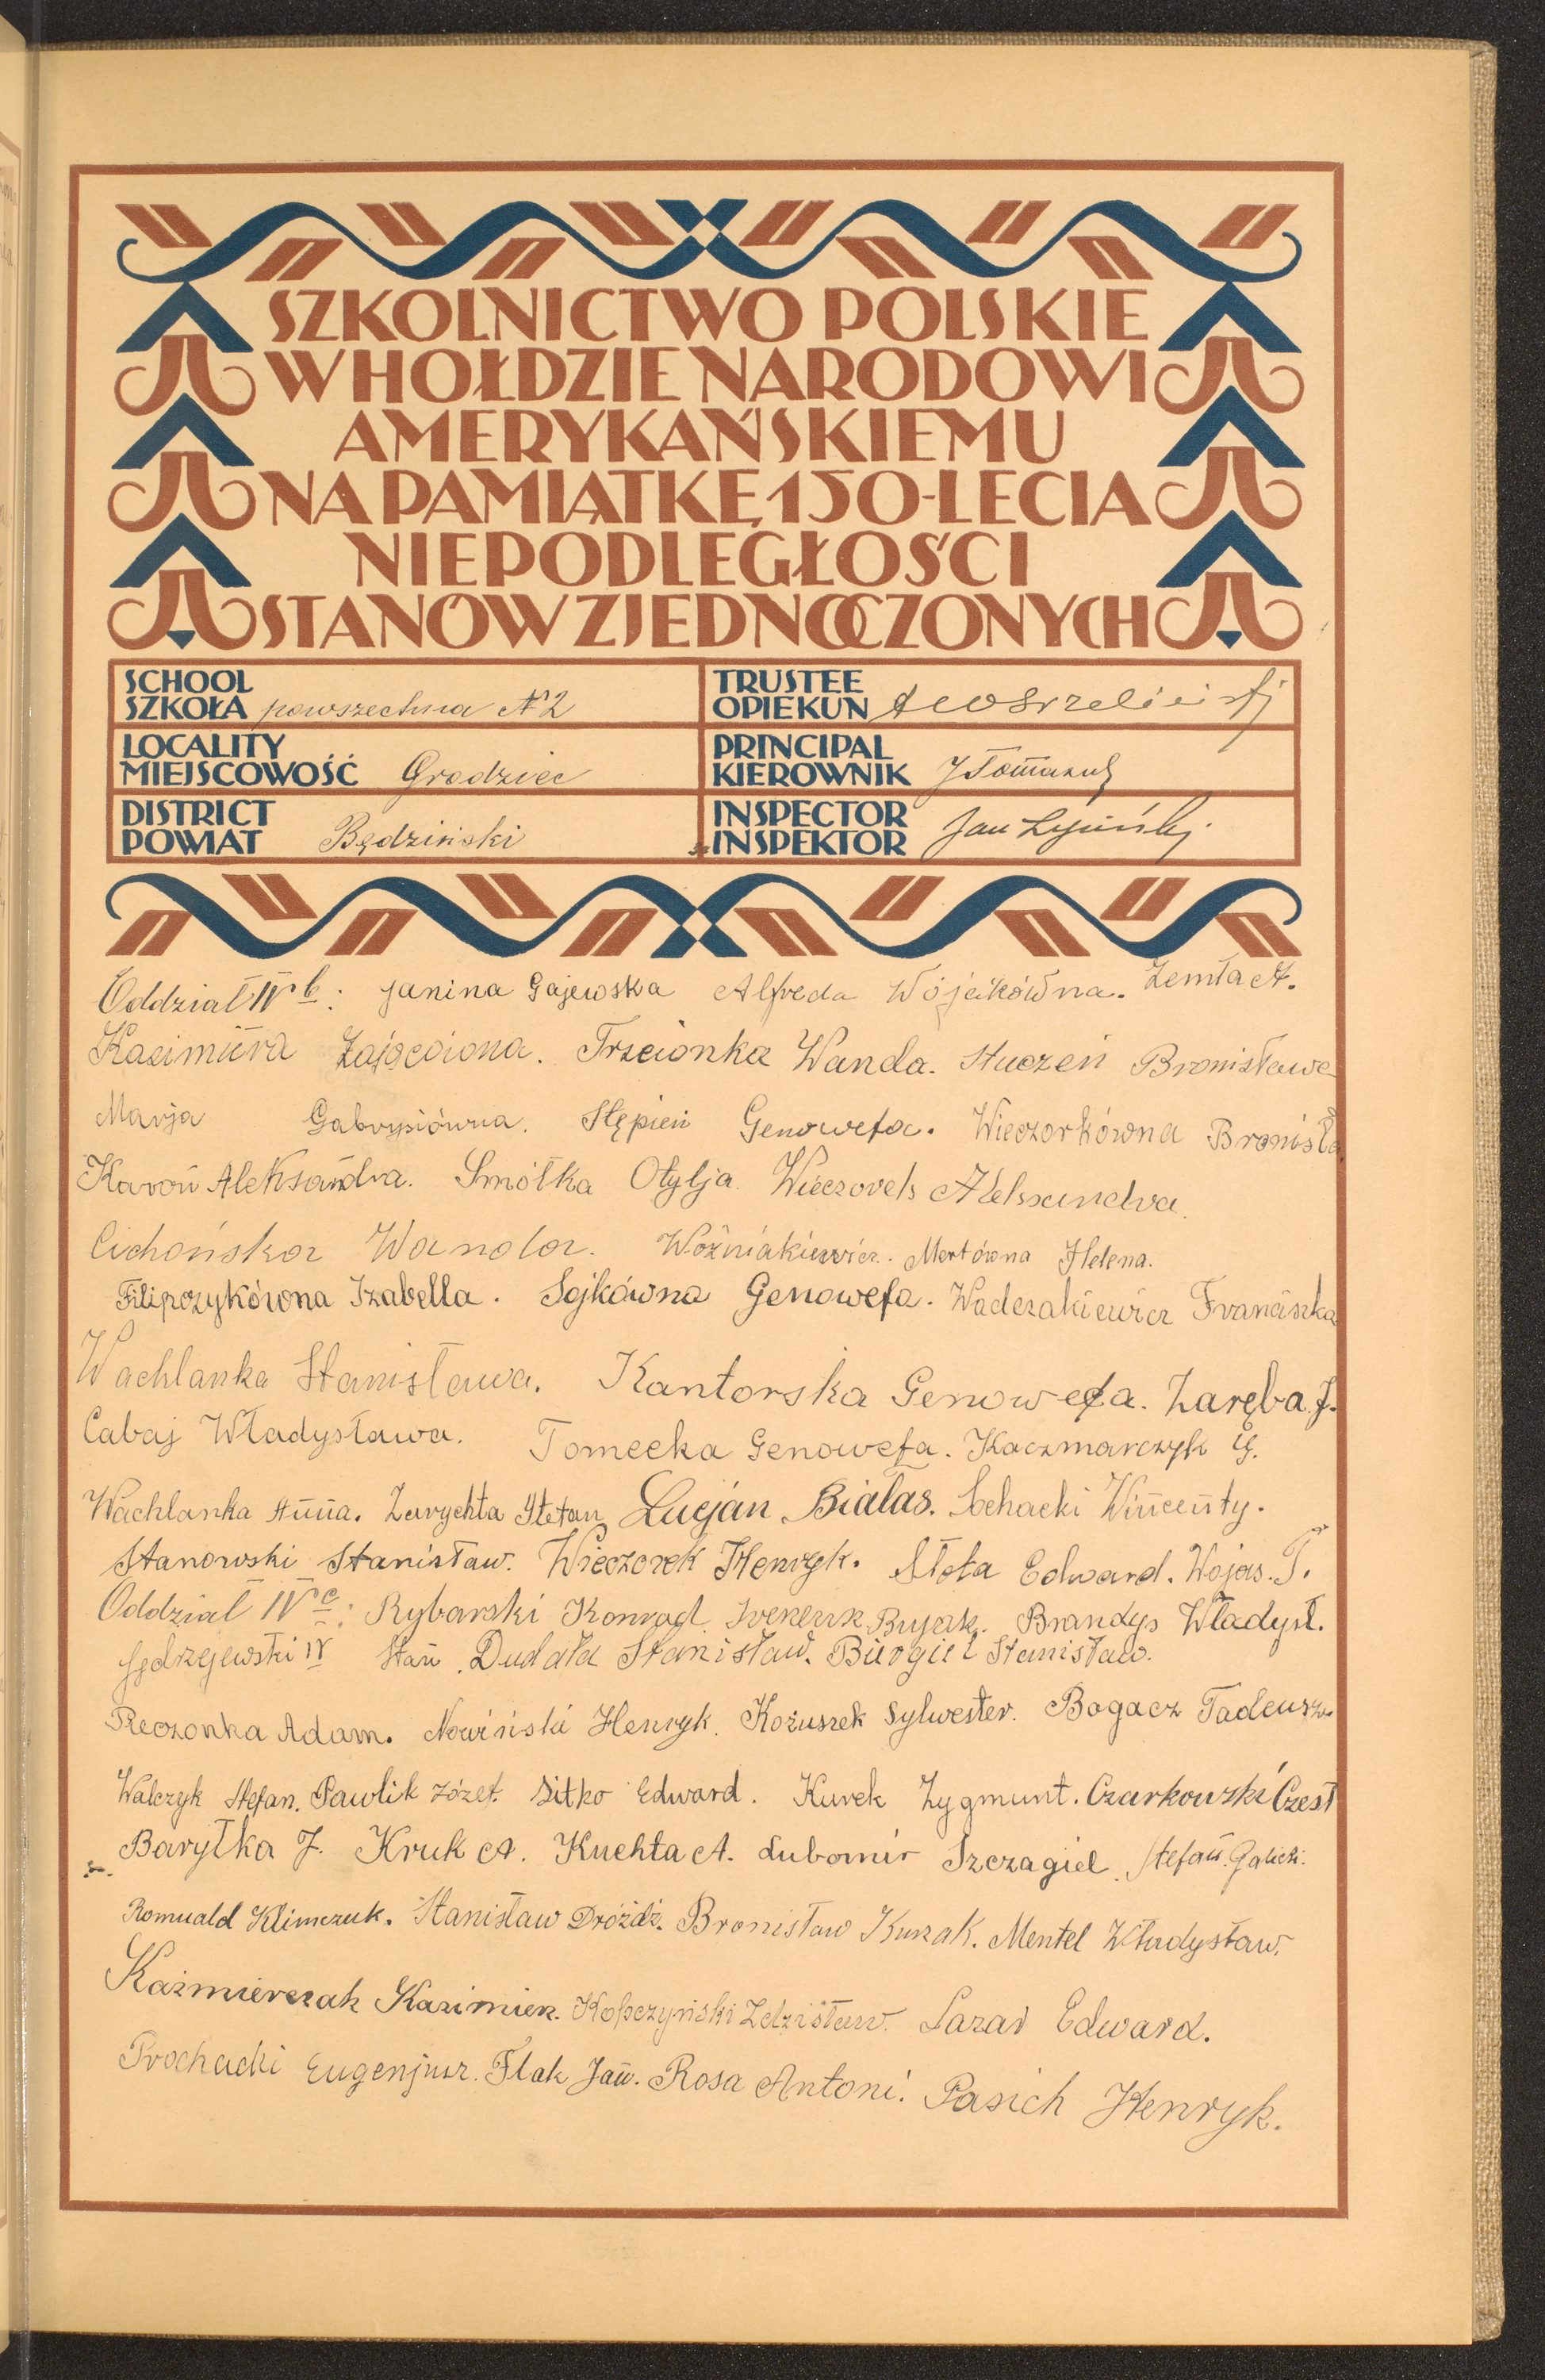 SZKOLNICTWO POLSKIE
W HOŁDZIE NARODOWI
AMERYKAŃSKIEMU
NA PAMIĄTKĘ 150-LECIA
NIEPODLEGŁOŚCI
STANÓW ZJEDNOCZONYCH
SCHOOL
SZKOŁA powszechna N2
TRUSTEE
OPIEKUN
LOCALITY
MIEJSCOWOŚĆ Grodziec
PRINCIPAL
KIEROWNIK
DISTRICT
POWIAT Będziński
INSPECTOR
INSPEKTOR Jan
Oddział IV b: Janina Gajewska Alfreda Wójcikówna. Żemła A.
Kazimiera Zającówna. Trzcionka Wanda. Stuczeń Bronisława
Marja Gabrysiówna. Stępień Genowefa. Wieczorkówna Bronisła
Karoń Aleksandra. Smółka Otylja. Wieczorek Aleksandra.
Cichońska Wanda. Woźniakiewicz. Mertówna Helena.
Filipczykówna Izabella. Sojkówna Genowefa. Waderakiewicz Franciszka
Wachlanka Stanisława. Kantorska Genowefa. Zaręba J.
Cabaj Władysława. Tomecka Genowefa. Kaczmarczyk G.
Wachlanka Anna. Zarychta Stefan Lucjan Białas. Sochacki Wincenty.
Stanowski Stanisław. Wieczorek Henryk. Stota Edward. Wojas. T.
Oddział IV c: Rybarski Konrad. Bujak. Brandys Władysł.
Jędrzejewski IV Stan. Dudała Stanisław. Birogiel Stanisław.
Reczonka Adam. Nowiński Henryk. Kożuszek Sylwester. Bogacz Tadeusz.
Walczyk Stefan. Pawlik Józef. Sitko Edward. Kurek Zygmunt. Czarkowski Czesł
Baryłka J. Kruk A. Kuchta A. Lubomir Szczagiel. Stefan. Galicki.
Romuald Klimczuk. Stanisław Dróżdż. Bronisław Kurzak. Mentel Władysław.
Kaźmierczak Kazimierz. Kopczyński Zdzisław. Lazar Edward.
Prochacki Eugenjusz. Flak Jan. Rosa Antoni. Pasich Henryk.